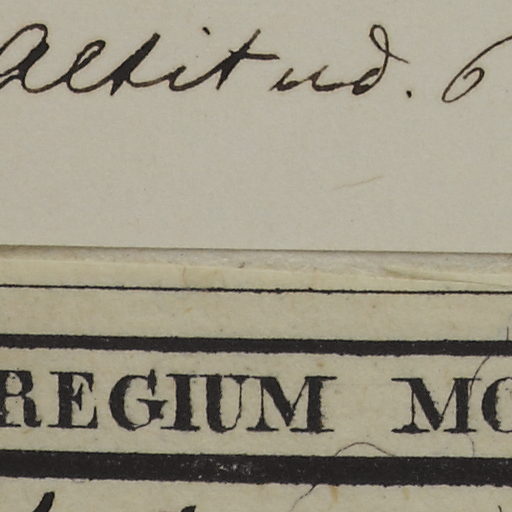 Altitud. 6
REGIUM MO